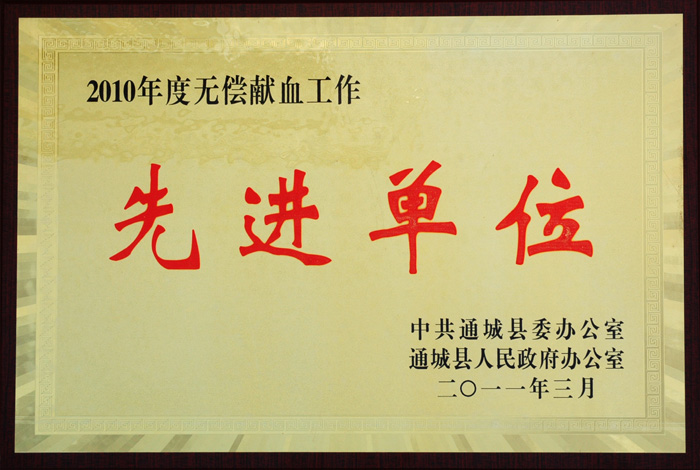 2010年度无偿献血工作
先进单位
中共通城县委办公室
通城县人民政府办公室
二〇一一年三月